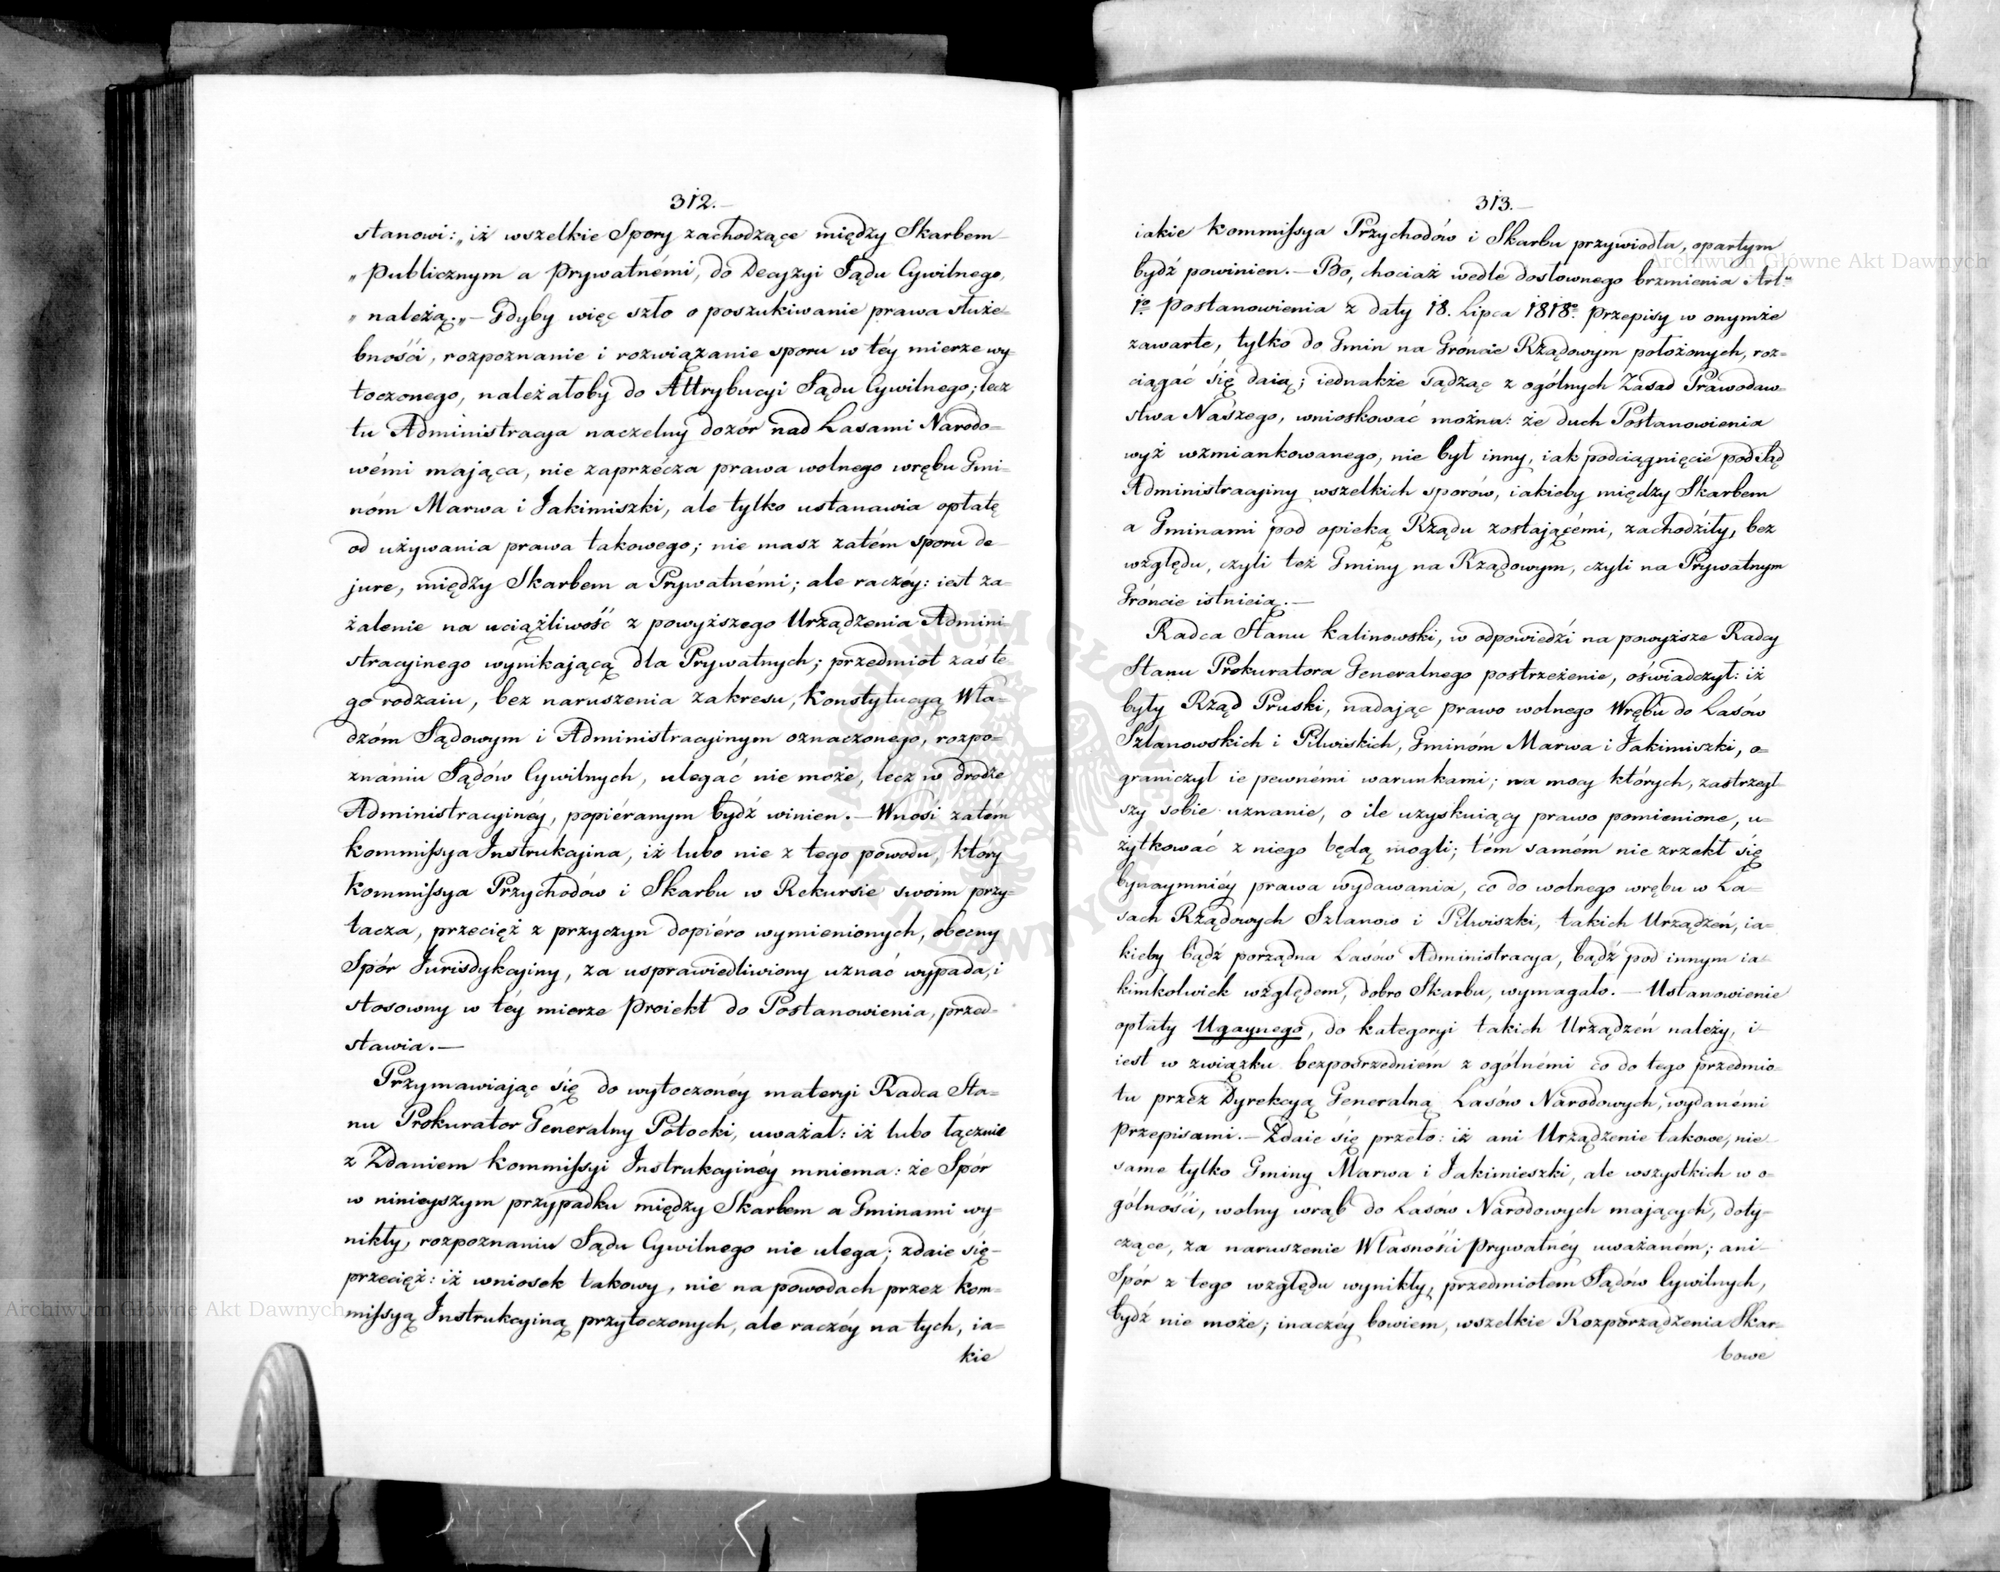 312.
stanowi: „iż wszelkie Spory zachodzące między Skarbem
„Publicznym a Prywatnémi, do Decyzyi Sądu Cywilnego,
„należą.„ — Gdyby więc szło o poszukiwanie prawa służe-
bności, rozpoznanie i rozwiązanie sporu w téy mierze wy-
toczonego, należałoby do Attrybucyi Sądu Cywilnego; lecz
tu Administracya naczelny dozór nad Lasami Narodo-
wémi mająca, nie zaprzécza prawa wolnego wrębu Gmi-
nóm Marwa i Jakimiszki, ale tylko ustanawia opłatę
od używania prawa takowego; nie masz zatém sporu de
jure, między Skarbem a Prywatnémi; ale raczéy: iest za-
żalenie na uciążliwość z powyższego Urządzenia Admini-
stracyinego wynikającą dla Prywatnych; przedmiot zaś te-
go rodzaiu, bez naruszenia zakresu, Konstytucyą Wła-
dzóm Sądowym i Administracyinym oznaczonego, rozpo-
znaniu Sądów Cywilnych, ulegać nie może, lecz w drodze
Administracyinéy, popiéranym bydź winien. — Wnosi zatém
Kommissya Instrukcyina, iż lubo nie z tego powodu, który
Kommissya Przychodów i Skarbu w Rekursie swoim przy-
tacza, przecięż z przyczyn dopiéro wymienionych, obecny
Spór Jurisdykcyiny, za usprawiedliwiony uznać wypada, i
stosowny w téy mierze Proiekt do Postanowienia, przed-
stawia. —
Przymawiając się do wytoczonéy materyi Radca Sta-
nu Prokurator Generalny Potocki, uważał: iż lubo łącznie
z Zdaniem Kommissyi Instrukcyinéy mniema: że Spór
w ninieyszym przypadku między Skarbem a Gminami wy-
nikły, rozpoznaniu Sądu Cywilnego nie ulega; zdaie się
przecięż: iż wniosek takowy, nie na powodach przez Kom-
missyą Instrukcyiną przytoczonych, ale raczéy na tych, ia-
kie
313.
iakie Kommissya Przychodów i Skarbu przywiodła, opartym
bydź powinien. — Bo, chociaż wedle dosłownego brzmienia Art.
1º Postanowienia z daty 18. Lipca 1818º Przepisy w onymże
zawarte, tylko do Gmin na Gróncie Rządowym położonych, roz-
ciągać się daią; iednakże sądząc z ogólnych Zasad Prawodaw-
stwa Naszego, wnioskować można: że duch Postanowienia
wyż wzmiankowanego, nie był inny, iak podciągnięcie pod Sąd
Administracyiny wszelkich sporów, iakieby między Skarbem
a Gminami pod opieką Rządu zostającémi, zachodziły, bez
względu, czyli też Gminy na Rządowym, czyli na Prywatnym
Gróncie istnieią. —
Radca Stanu Kalinowski, w odpowiedzi na powyższe Radcy
Stanu Prokuratora Generalnego postrzeżenie, oświadczył: iż
były Rząd Pruski, nadając prawo wolnego Wrębu do Lasów
Szlanowskich i Pilwiskich, Gminóm Marwa i Jakimiszki, o-
graniczył ie pewnémi warunkami; na mocy których, zastrzegł-
szy sobie uznanie, o ile uzyskuiący prawo pomienione, u-
żytkować z niego będą mogli; tém samém nie zrzekł się
bynaymniéy prawa wydawania, co do wolnego wrębu w La-
sach Rządowych Szlanow i Pilwiszki, takich Urządzeń, ia-
kieby bądź porządna Lasów Administracya, bądź pod innym ia-
kimkolwiek względem, dobro Skarbu, wymagało. — Ustanowienie
opłaty Ugaynego, do kategoryi takich Urządzeń należy, i
iest w związku bezpośrzedniém z ogólnémi co do tego przedmio-
tu przez Dyrekcyą Generalną Lasów Narodowych, wydanémi
Przepisami. — Zdaie się przeto: iż ani Urządzenie takowe, nie
same tylko Gminy Marwa i Jakimieszki, ale wszystkich w o-
gólności, wolny wrąb do Lasów Narodowych mających, doty-
czące, za naruszenie Własności Prywatnéy uważaném; ani
Spór z tego względu wynikły, przedmiotem Sądów Cywilnych,
bydź nie może; inaczéy bowiem, wszelkie Rozporządzenia Skar-
bowe
Archiwum Główne Akt Dawnych
Archiwum Główne Akt Dawnych
ARCHIWUM GŁÓWNE AKT DAWNYCH